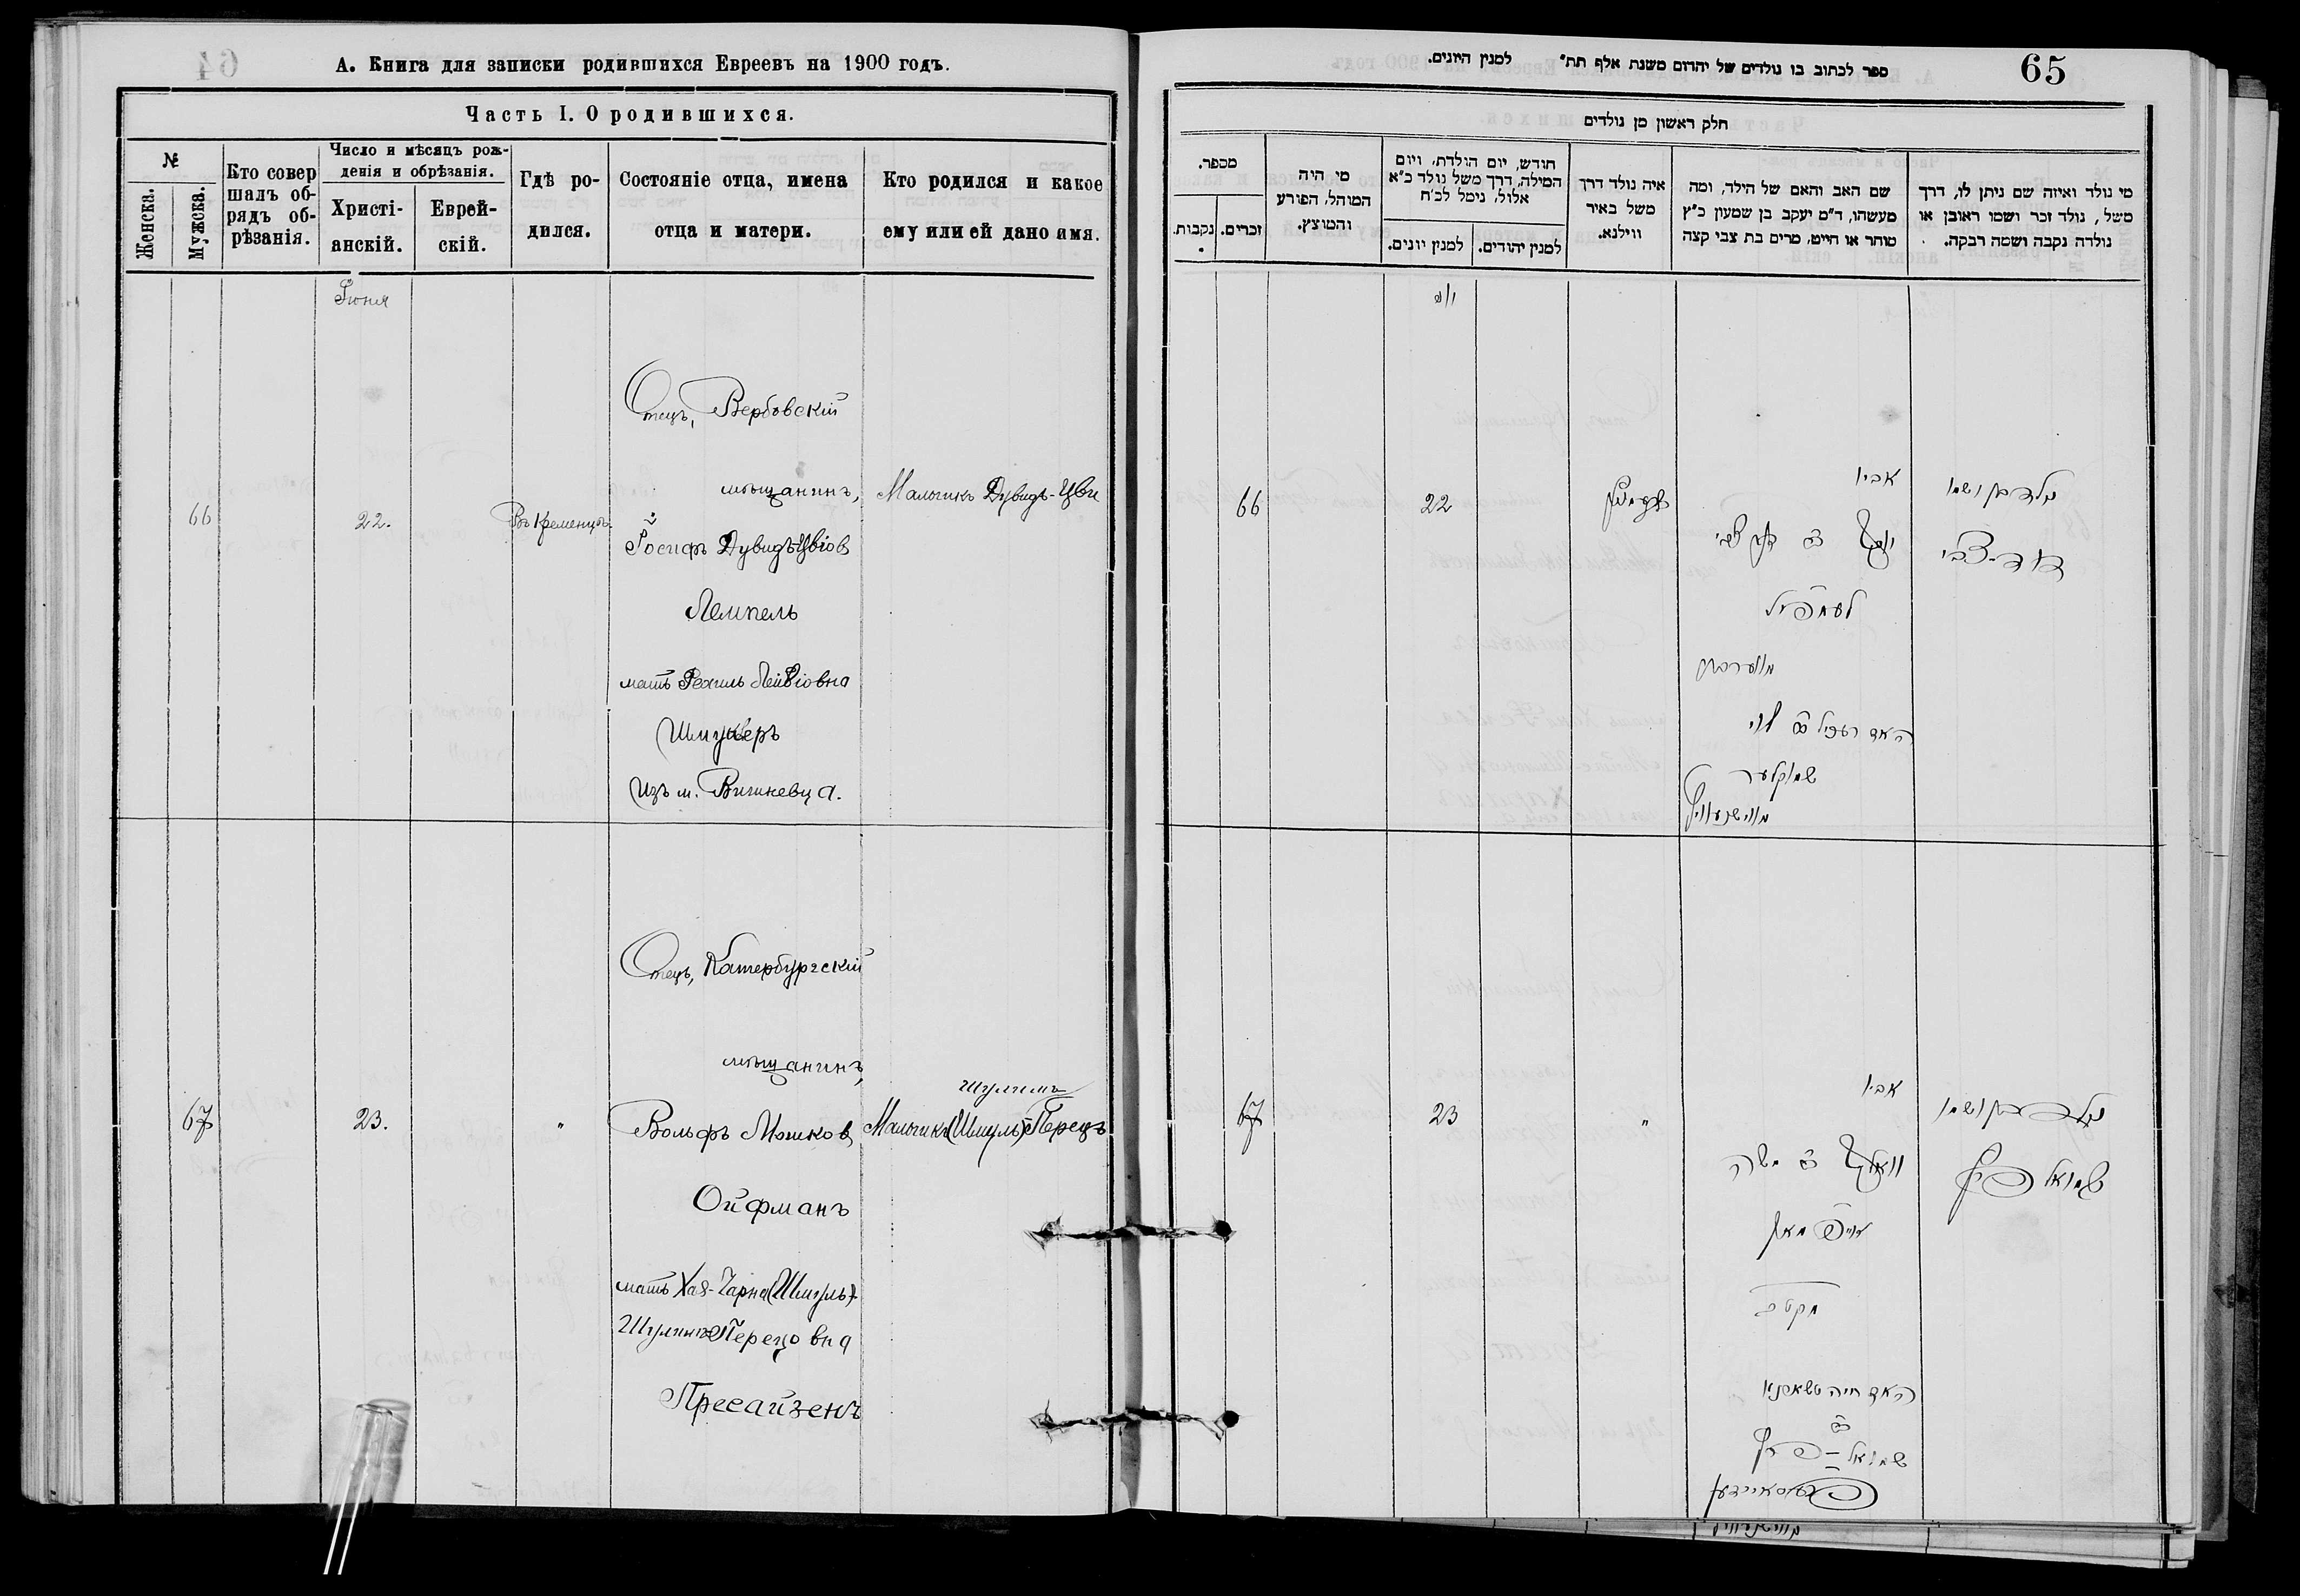 А. Книга для записки родившихся Евреевъ на 1900 годъ.
Часть I. О родившихся.
№
Женска.
Мужска.
Кто совер
шалъ об-
рядъ об-
рѣзанія.
Число и мѣсяцъ рож-
денія и обрѣзанія.
Христі-
анскій.
Еврей-
скій.
Гдѣ ро-
дился.
Состояніе отца, имена
отца и матери.
Кто родился и какое
ему или ей дано имя.
Іюня
66
22.
Въ Кременцѣ
Отецъ, Вербовскій
мѣщанинъ,
Іосифъ Дувидъ-Цвіов
Лемпель
мать Рехиль Лейвіовна
Шмуклеръ
Изъ м. Вишневца.
Мальчикъ Дувидъ-Цви
67
23.
"
Отецъ, Катербургскій
мѣщанинъ,
Вольфъ Мошков
Ойфманъ
мать Хая-Чарна (Шмуль)-
Шулимъ Перецовна
Пресайзенъ
Шулимъ
Мальчикъ (Шмуль)-Перецъ
65
ספר לכתוב בו נולדים של יהדום משנת אלף תת״ למנין היונים.
חלק ראשון מן נולדים
מספר.
נקבות.
זכרים.
מי היה
המוהל, הפורע
והמוצץ.
חודש, יום הולדת, ויום
המילה, דרך משל נולד כ״א
אלול, נימל לכ״ח
למנין יונים.
למנין יהודים.
איה נולד דרך
משל באיר
ווילנא.
שם האב והאם של הילד, ומה
מעשהו, ד״מ יעקב בן שמעון כ״ץ
סוחר או חייט, מרים בת צבי קצה
מי נולד ואיזה שם ניתן לו, דרך
משל, נולד זכר ושמו ראובן או
נולדה נקבה ושמה רבקה.
66
22
אביו
יוסף ב דוד צבי
לעמפיל
האם רעכיל ב לוי
שמוקלער
מווישנעוויץ
נולד בן ושמו
דוד-צבי
67
23
"
אביו
וואלף ב משה
אויפמאן
האם חיה טשארנא
ב
שמואל = פרץ
נולד בן ושמו
שמואל פרץ